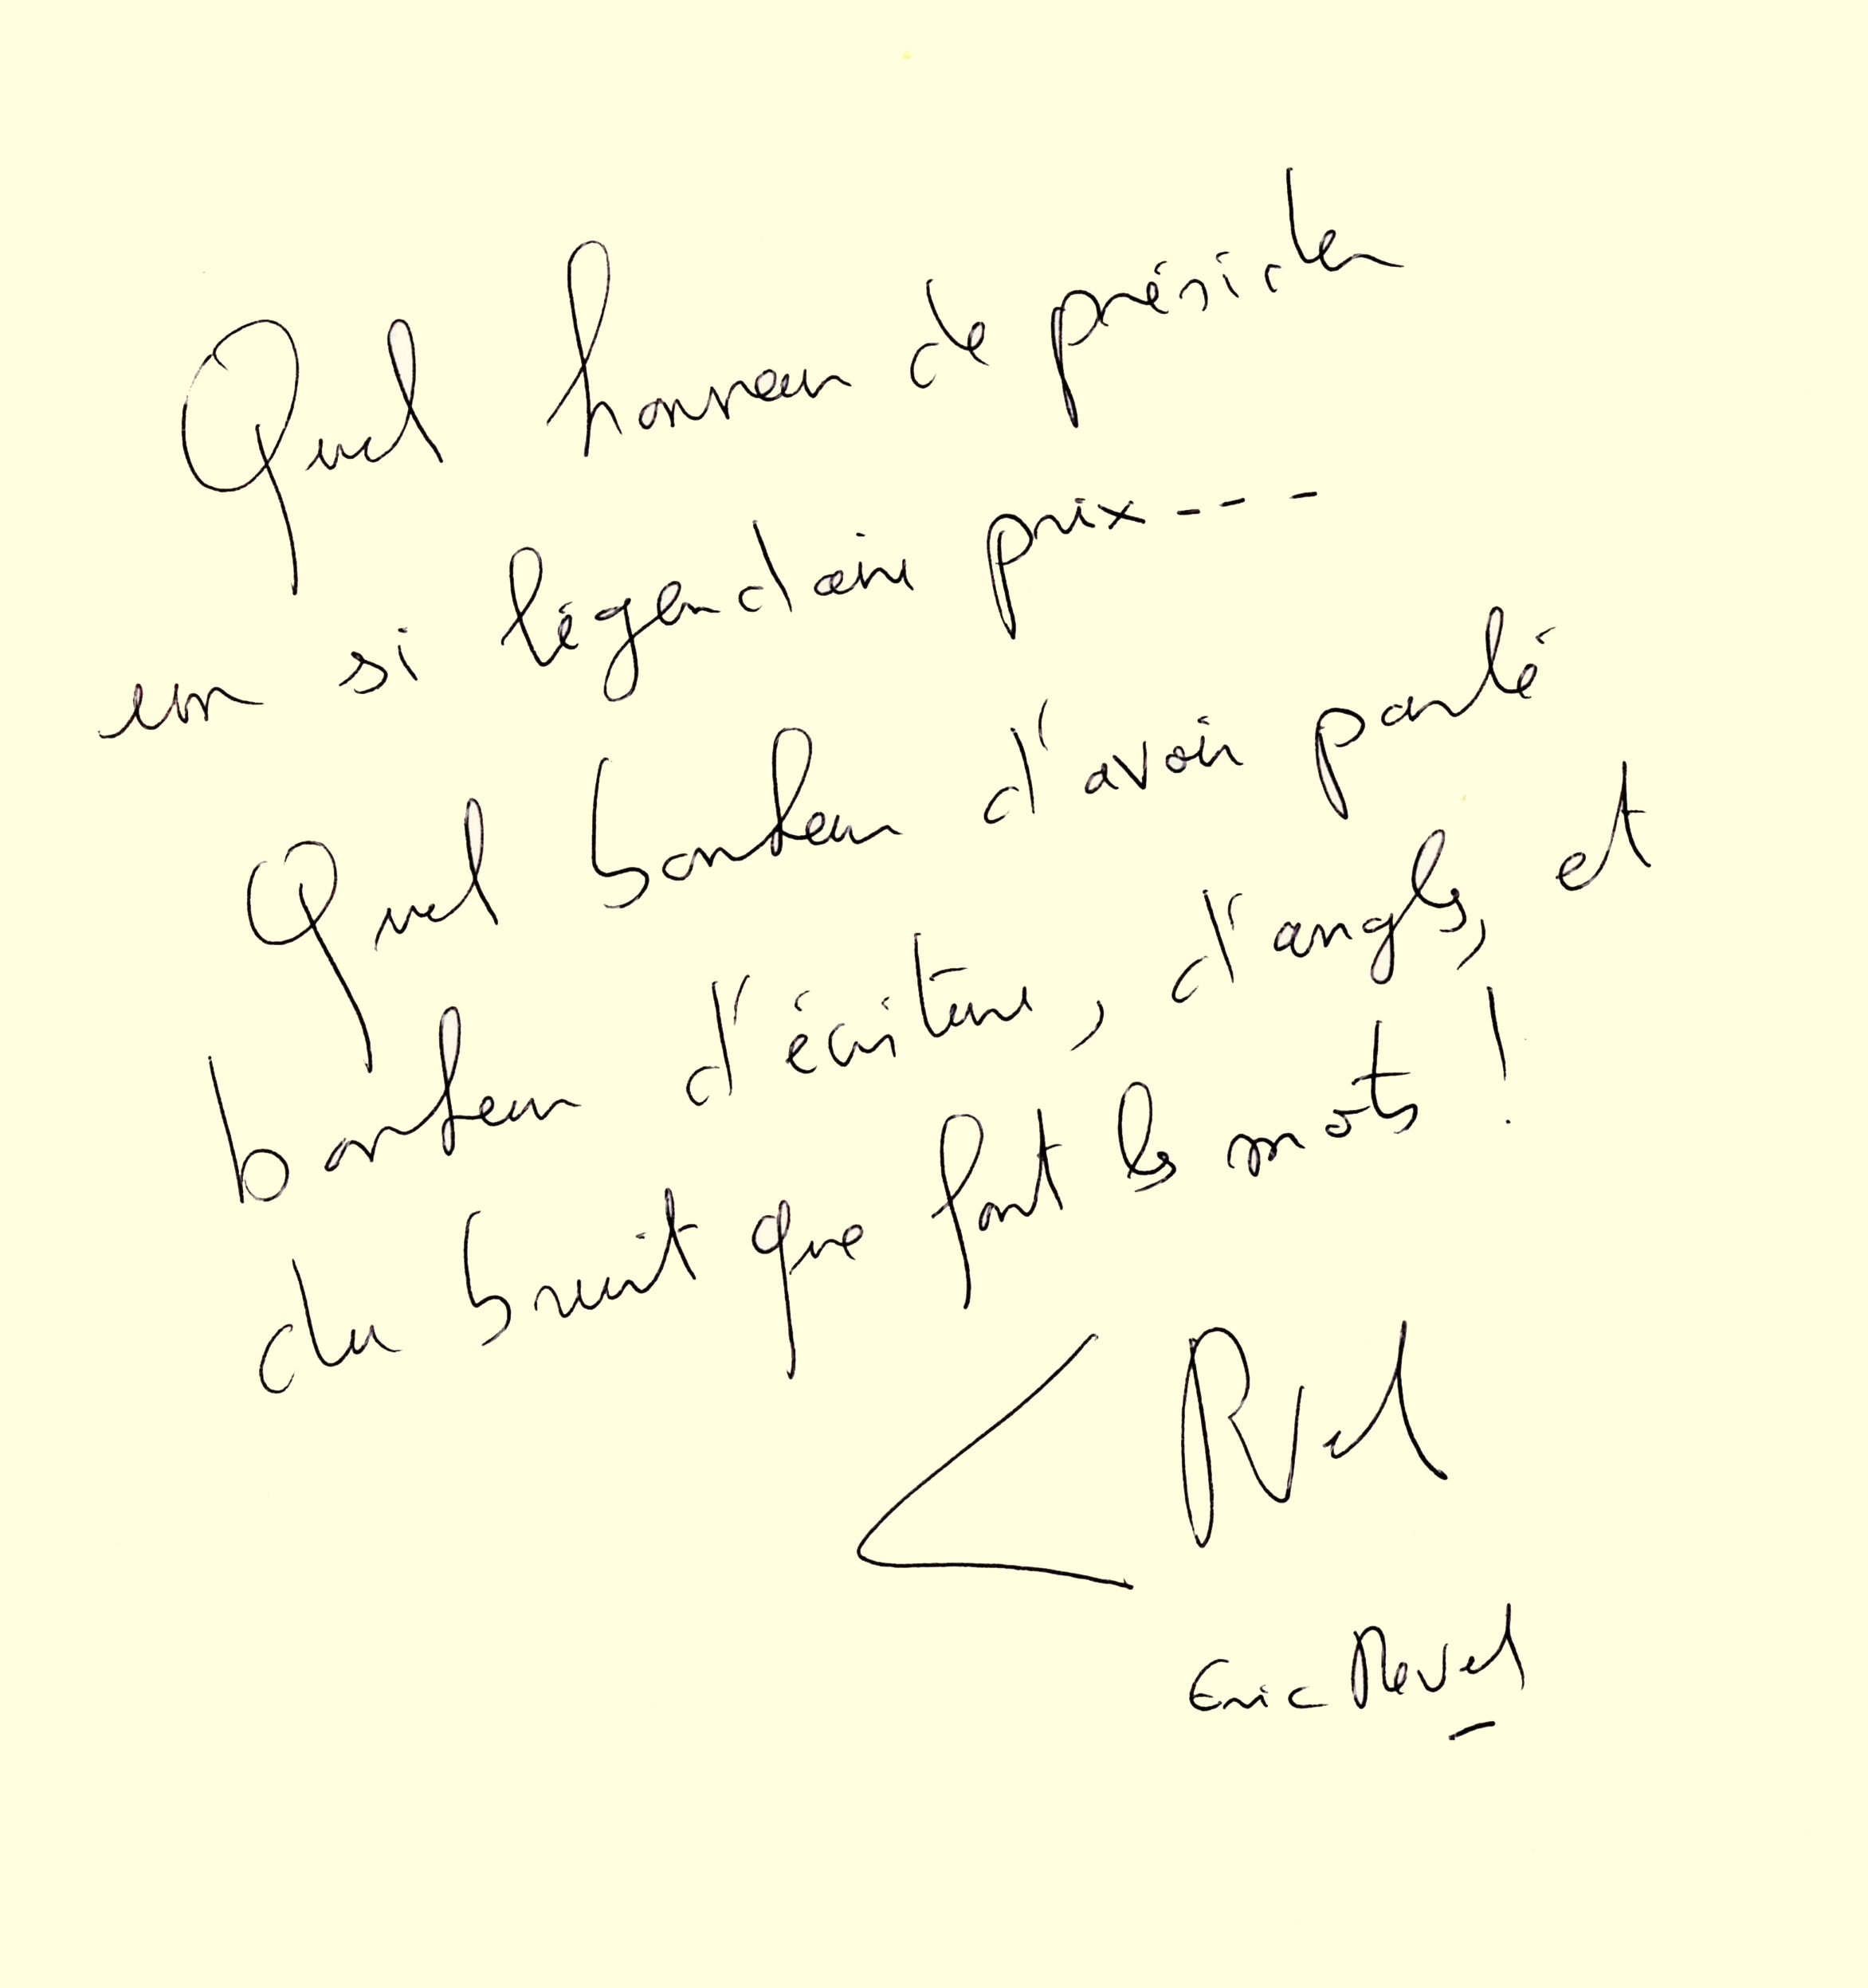 Quel honneur de présider
un si légendaire prix - - -
Quel bonheur d'avoir parlé
bonheur d'écriture, d'angles, et
du bruit que font les mots !
Revel
Eric Revel